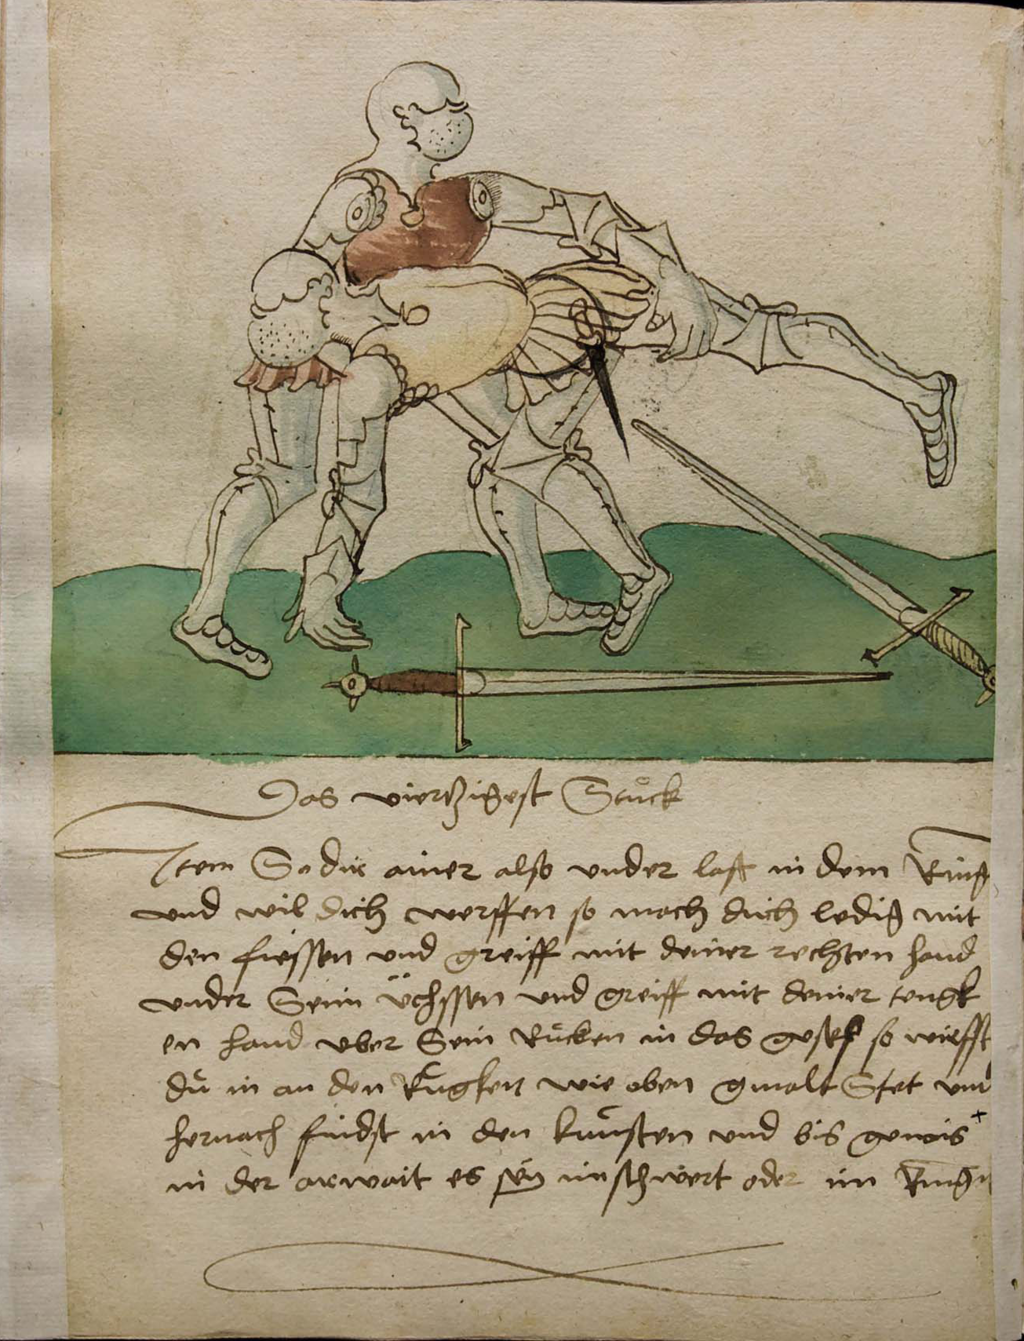 Das viertzigest Stuck
Item So dir ainer also under lafft in dem Ring
und wil dich werffen so mach dich ledig mit
den fiessen und greiff mit deiner rechten hand
under Sein üchssen und greiff mit deiner
en hand uber Sein Rucken in das gesess so wirfft
du in an den Ruggken wie oben gmalt Stet und
hernach findst in den kunsten und bis gewis
in der arwait es sey im schwert oder im Ring